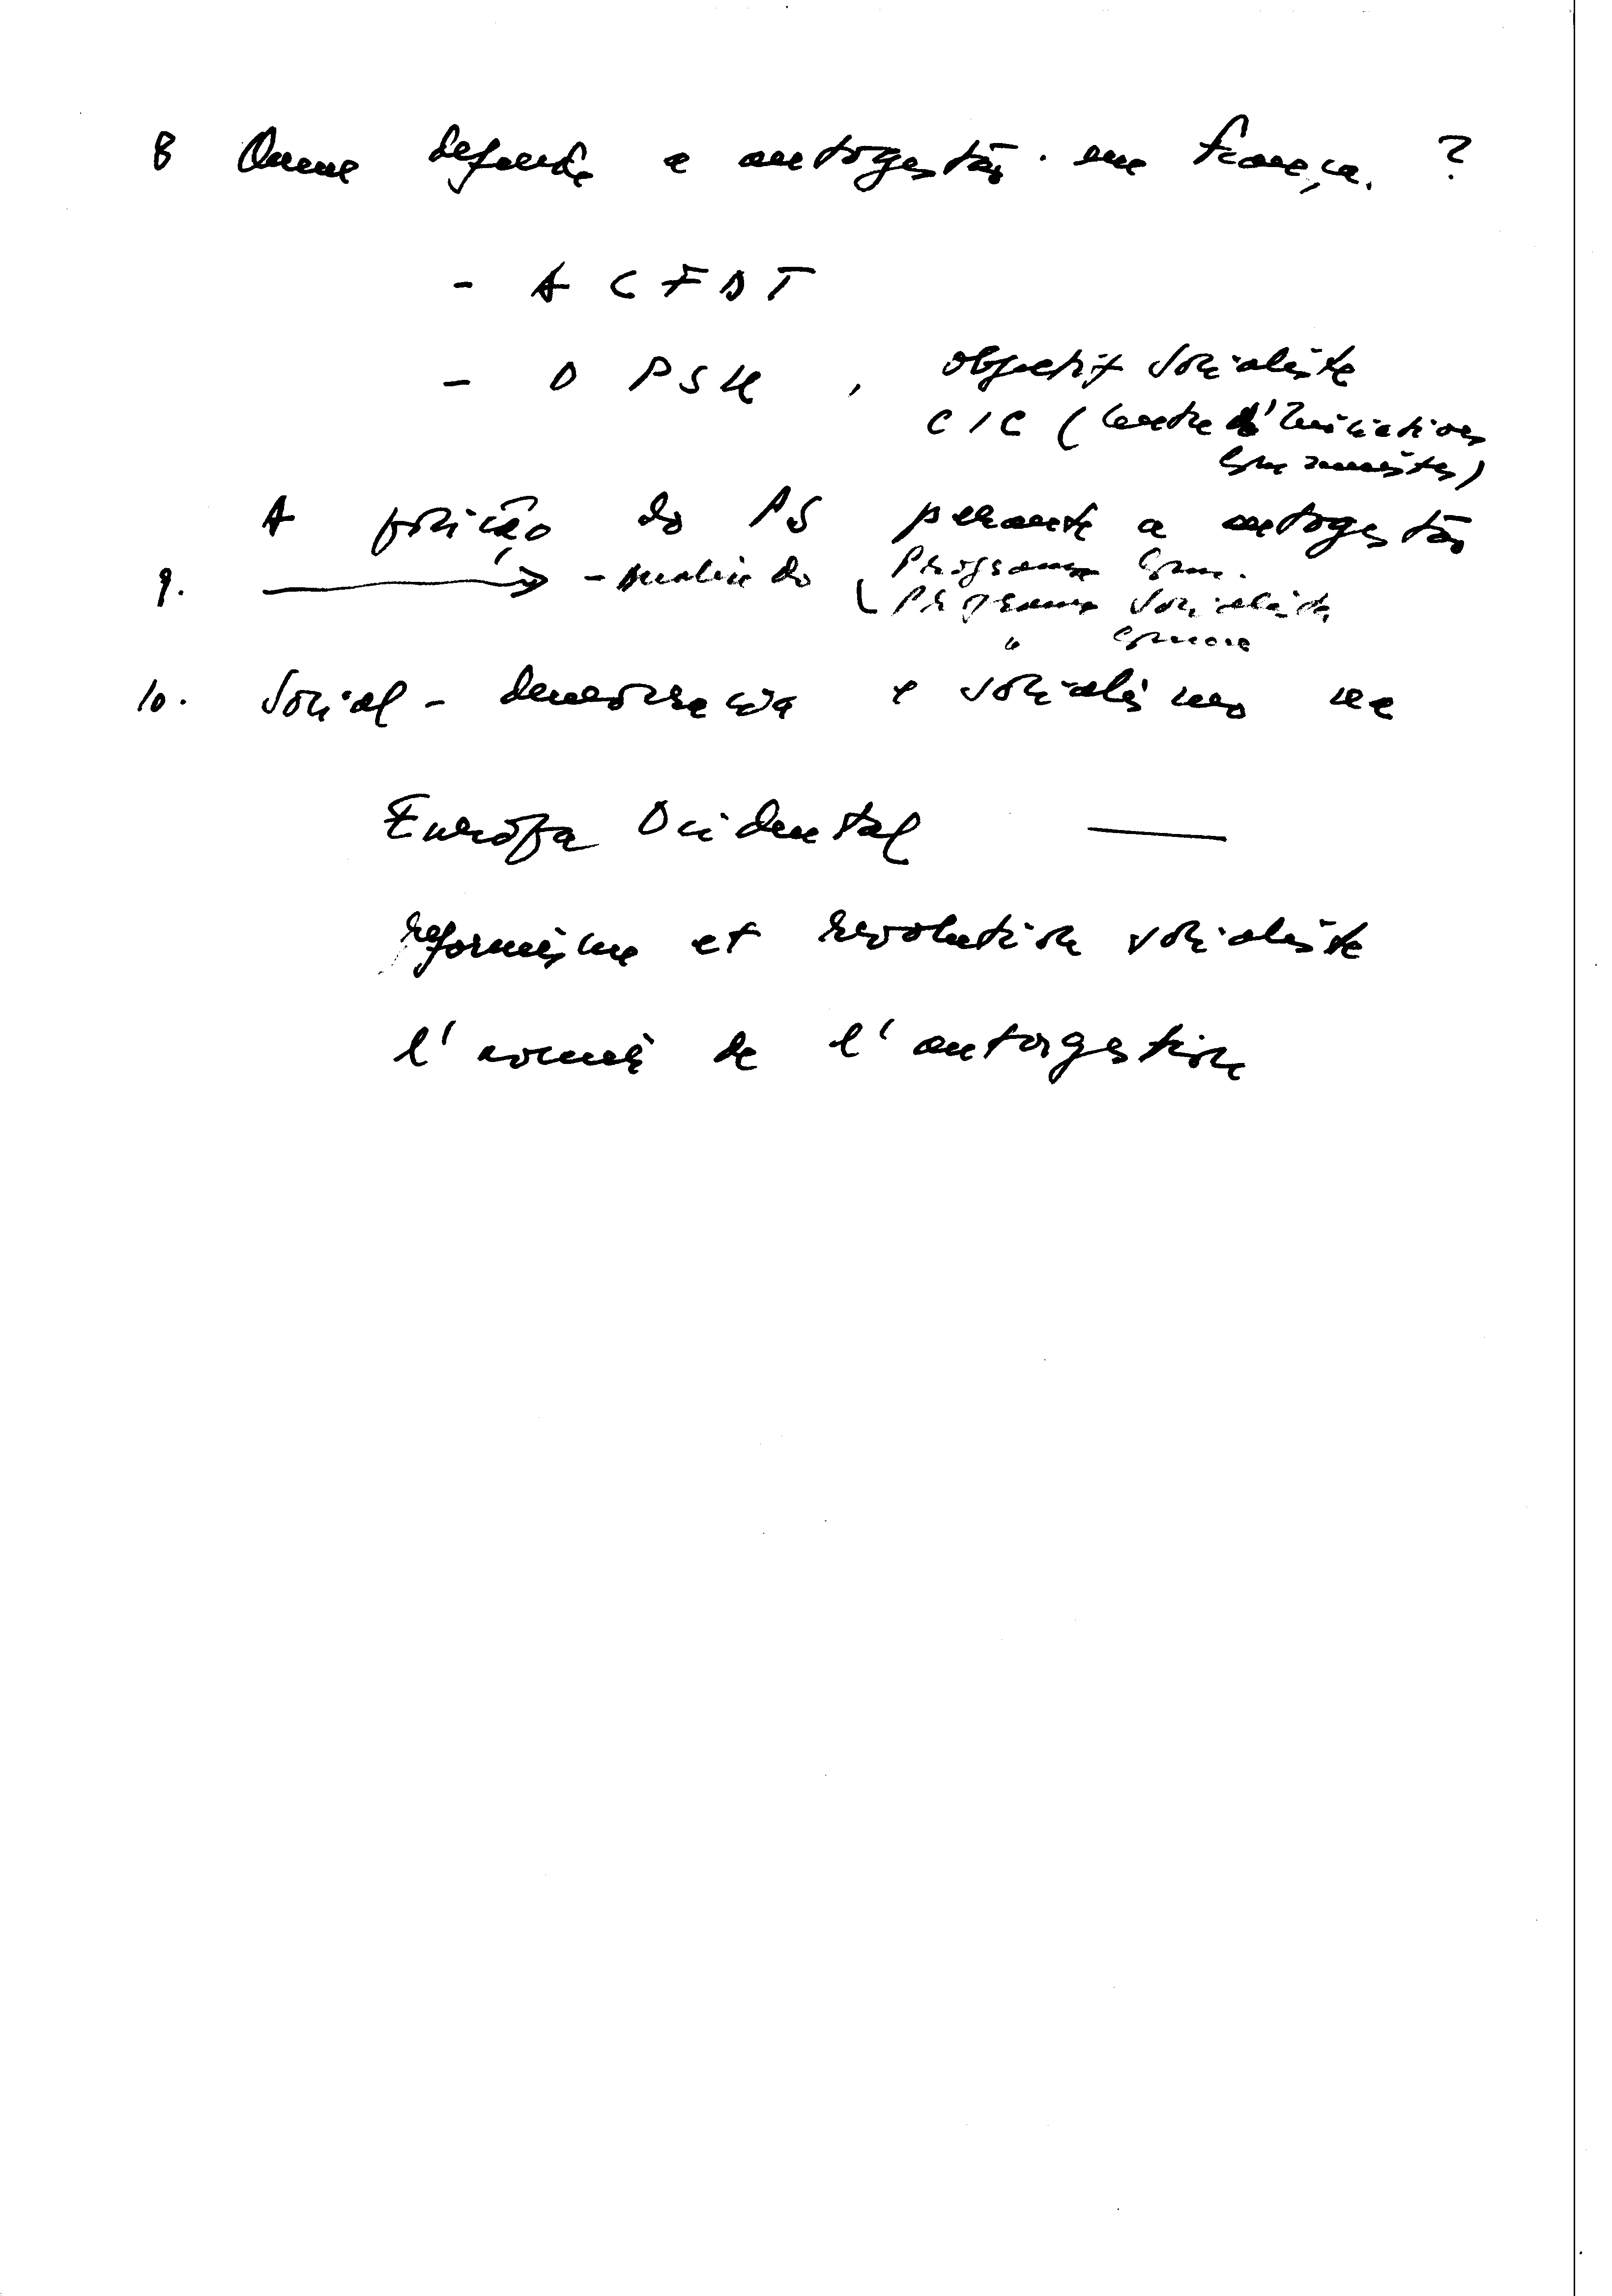 8 Quem defende a autogestão. em França. ?
- A CFDT
- O PSU, Objectif Socialiste
CIC (Centre d'Initiatives
Communistes)
A posição do PS perante a autogestão
9. → - Analise do Programa Com.
Programa Socialista
" Comum
10. Social-democracia e socialismo na
Europa Ocidental —
reformisme et revolution socialiste
l' de l'autogestion